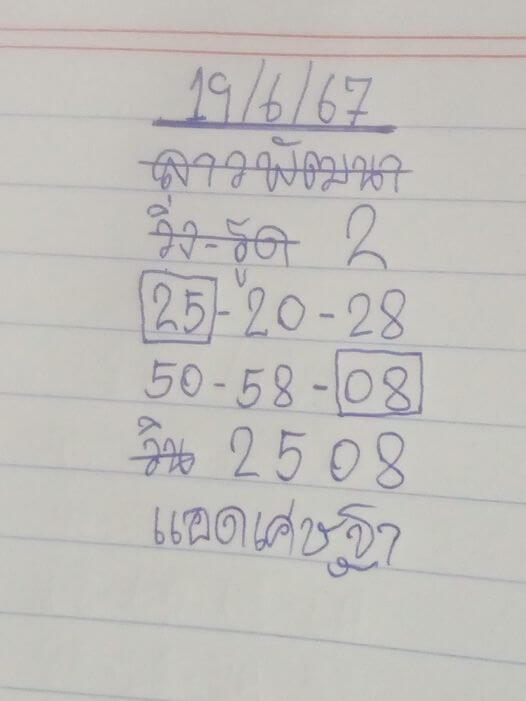 19/6/67
ลาวพัฒนา
วิ่ง-รูด 2
25-20-28
50-58-08
วิน 2508
แอดเศษฐา